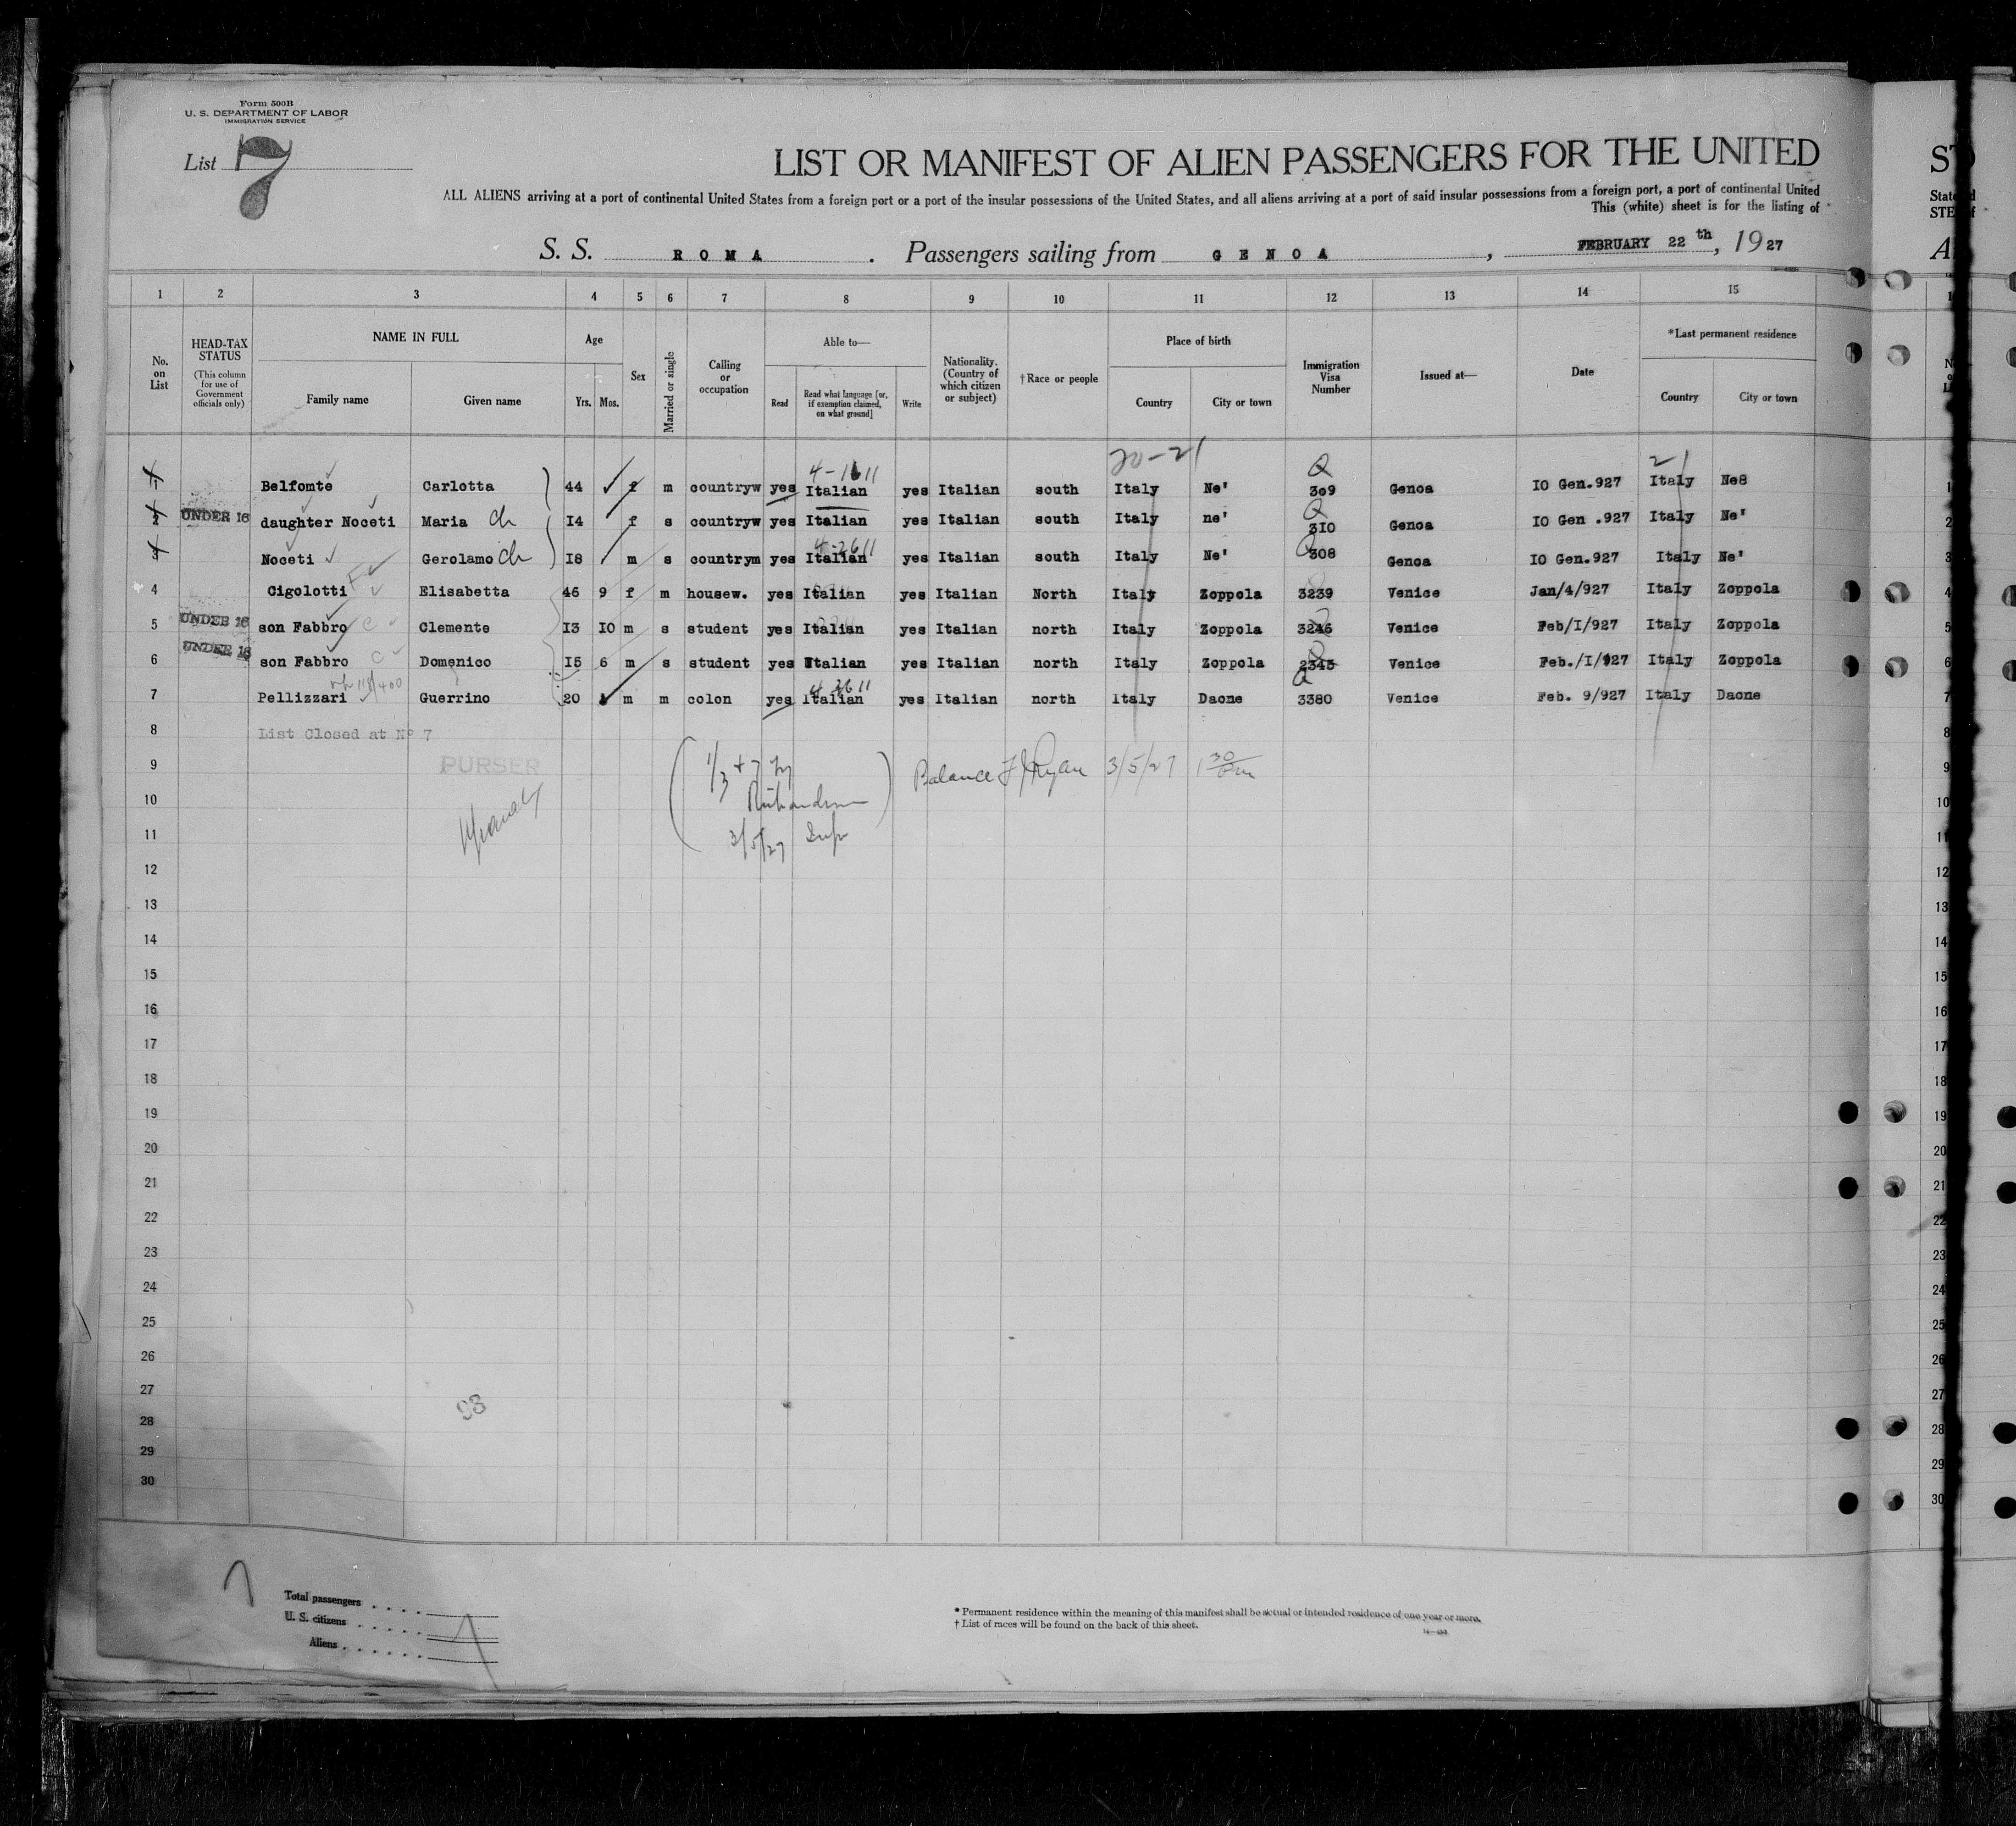 Form 500B
U. S. DEPARTMENT OF LABOR
IMMIGRATION SERVICE
List 7
LIST OR MANIFEST OF ALIEN PASSENGERS FOR THE UNITED
ALL ALIENS arriving at a port of continental United States from a foreign port or a port of the insular possessions of the United States, and all aliens arriving at a port of said insular possessions from a foreign port, a port of continental United
This (white) sheet is for the listing of
S. S. ROMA. Passengers sailing from GENOA, FEBRUARY 22 th, 1927
1 2 3 4 5 6 7 8 9 10 11 12 13 14 15
No. on List
HEAD-TAX STATUS
(This column for use of Government officials only)
NAME IN FULL
Family name Given name
Age
Yrs. Mos.
Sex
Married or single
Calling or occupation
Able to—
Read
Read what language [or, if exemption claimed, on what ground]
Write
Nationality. (Country of which citizen or subject)
†Race or people
Place of birth
Country City or town
Immigration Visa Number
Issued at—
Date
*Last permanent residence
Country City or town
20-21 21
1 Belfomte Carlotta 44 f m countryw yes Italian yes Italian south Italy Ne' 309 Genoa IO Gen.927 Italy Ne8 1
2 UNDER 16 daughter Noceti Maria ch I4 f s countryw yes Italian yes Italian south Italy ne' 3IO Genoa IO Gen .927 Italy Ne' 2
3 Noceti Gerolamo ch I8 m s countrym yes Italian yes Italian south Italy Ne' 308 Genoa IO Gen.927 Italy Ne' 3
4 Cigolotti Elisabetta 46 9 f m housew. yes Italian yes Italian North Italy Zoppola 3239 Venice Jan/4/927 Italy Zoppola 4
5 UNDER 16 son Fabbro C Clemente I3 IO m s student yes Italian yes Italian north Italy Zoppola 3246 Venice Feb/I/927 Italy Zoppola 5
6 UNDER 16 son Fabbro C Domenico I5 6 m s student yes Italian yes Italian north Italy Zoppola 2345 Venice Feb./I/927 Italy Zoppola 6
7 Pellizzari Guerrino 20 m m colon yes Italian yes Italian north Italy Daone 3380 Venice Feb. 9/927 Italy Daone 7
8 List Closed at Nº 7 8
9 PURSER 1/3 + 7 by Balance F J Ryan 3/5/27 1 30 pm 9
10 Richardson 10
11 3/5/27 Insp 11
12 12
13 13
14 14
15 15
16 16
17 17
18 18
19 19
20 20
21 21
22 22
23 23
24 24
25 25
26 26
27 93 27
28 28
29 29
30 30
7
Total passengers
U. S. citizens
Aliens
* Permanent residence within the meaning of this manifest shall be actual or intended residence of one year or more.
† List of races will be found on the back of this sheet.